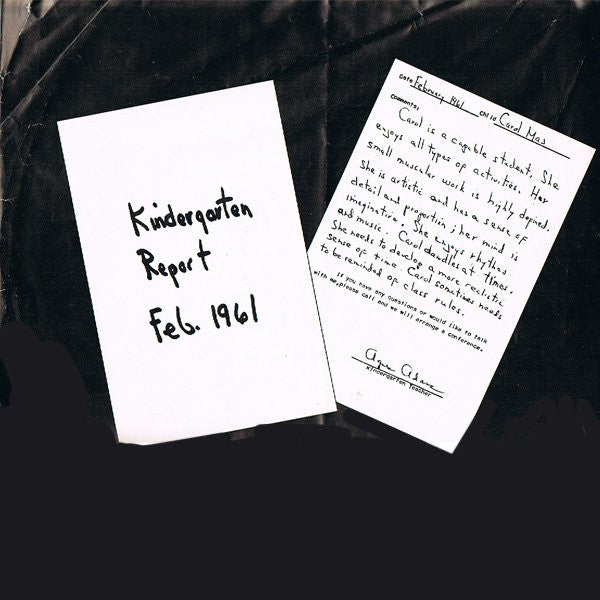 Kindergarten
Report
Feb. 1961
Date February 1961 Child Carol Mas
Comments:
Carol is a capable student. She
enjoys all types of activities. Her
small muscular work is highly defined.
She is artistic and has a sense of
detail and proportion; her mind is
imaginative. She enjoys rhythms
and music. Carol dawdles at times.
She needs to develop a more realistic
sense of time. Carol sometimes needs
to be reminded of class rules.
If you have any questions or would like to talk
with me, please call and we will arrange a conference.
Kindergarten Teacher